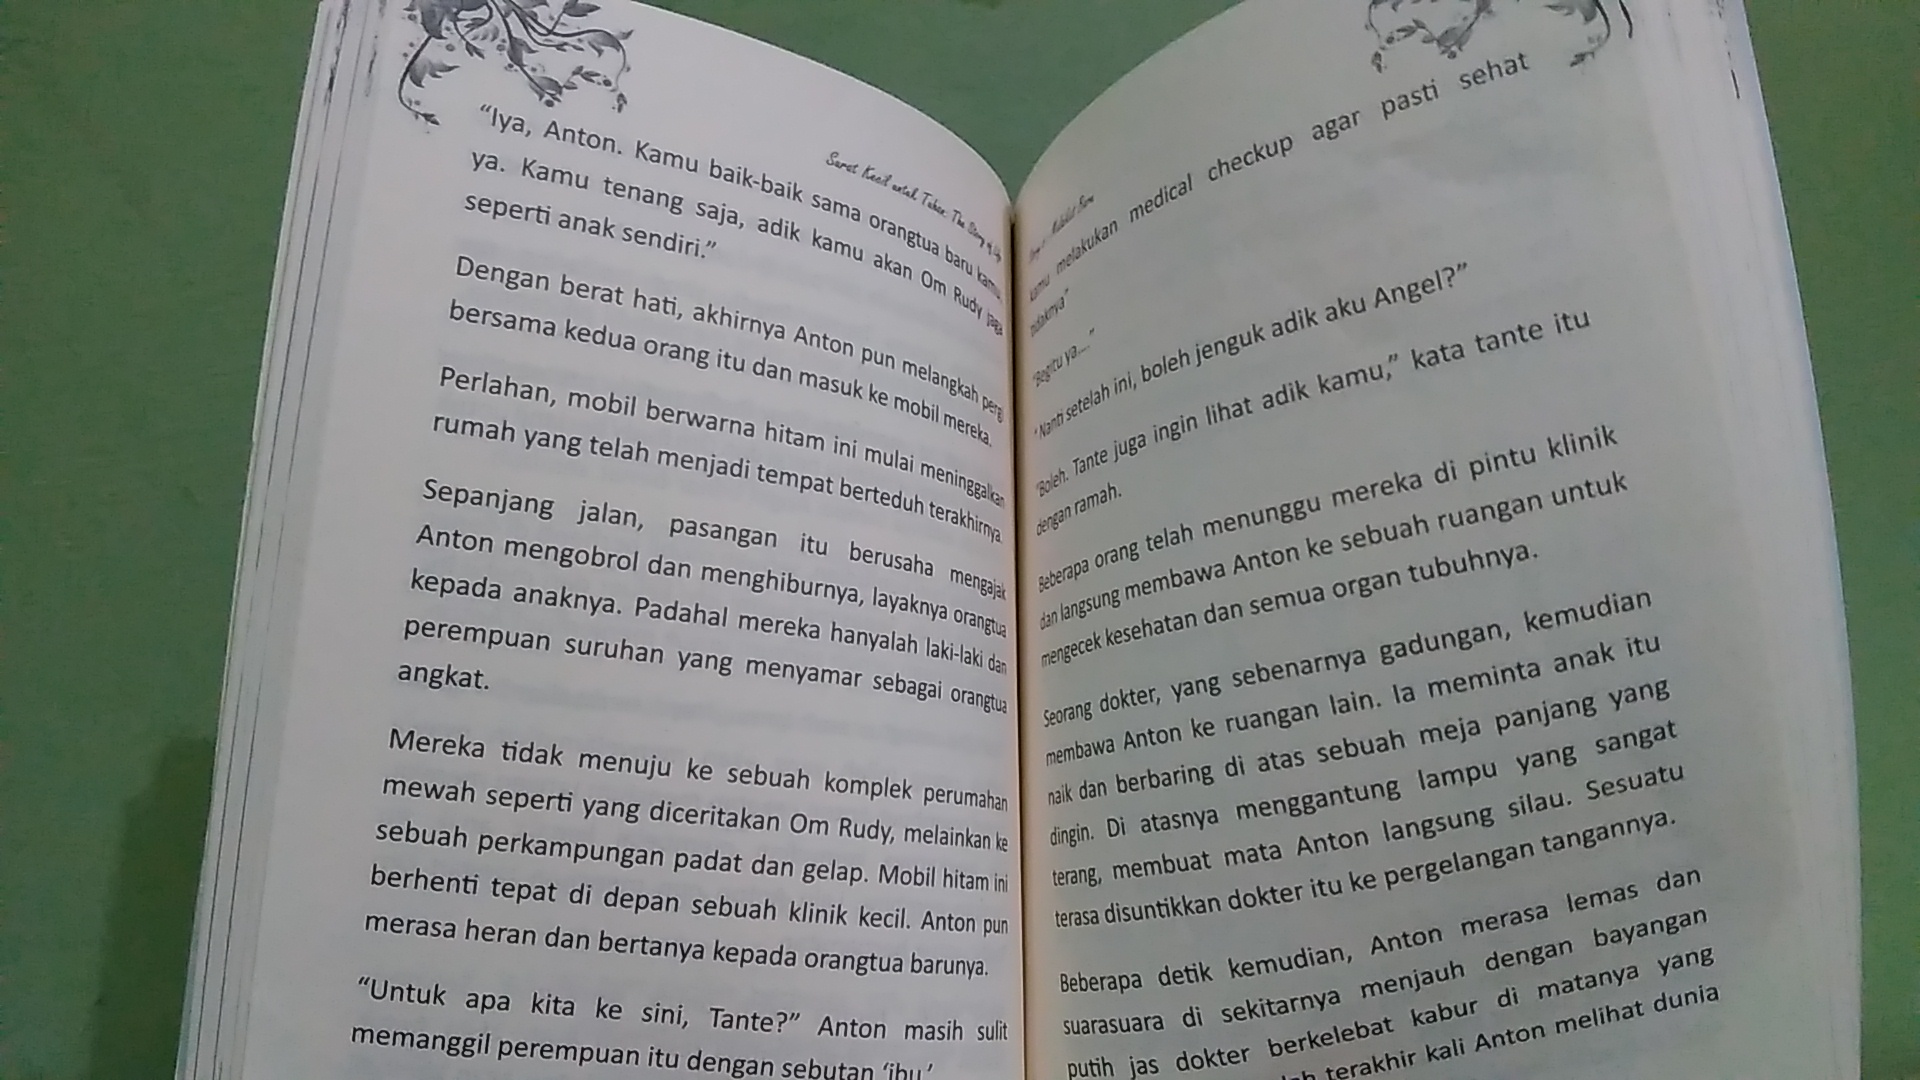 Surat Kecil untuk Tuhan: The Story of
"Iya, Anton. Kamu baik-baik sama orangtua baru kamu
ya. Kamu tenang saja, adik kamu akan Om Rudy jaga
seperti anak sendiri."
Dengan berat hati, akhirnya Anton pun melangkah pergi
bersama kedua orang itu dan masuk ke mobil mereka.
Perlahan, mobil berwarna hitam ini mulai meninggalkan
rumah yang telah menjadi tempat berteduh terakhirnya.
Sepanjang jalan, pasangan itu berusaha mengajak
Anton mengobrol dan menghiburnya, layaknya orangtua
kepada anaknya. Padahal mereka hanyalah laki-laki dan
perempuan suruhan yang menyamar sebagai orangtua
angkat.
Mereka tidak menuju ke sebuah komplek perumahan
mewah seperti yang diceritakan Om Rudy, melainkan ke
sebuah perkampungan padat dan gelap. Mobil hitam ini
berhenti tepat di depan sebuah klinik kecil. Anton pun
merasa heran dan bertanya kepada orangtua barunya.
"Untuk apa kita ke sini, Tante?" Anton masih sulit
memanggil perempuan itu dengan sebutan 'ibu.'
kamu melakukan medical checkup agar pasti sehat
tidaknya"
"Begitu ya...."
"Nanti setelah ini, boleh jenguk adik aku Angel?"
"Boleh. Tante juga ingin lihat adik kamu," kata tante itu
dengan ramah.
Beberapa orang telah menunggu mereka di pintu klinik
dan langsung membawa Anton ke sebuah ruangan untuk
mengecek kesehatan dan semua organ tubuhnya.
Seorang dokter, yang sebenarnya gadungan, kemudian
membawa Anton ke ruangan lain. Ia meminta anak itu
naik dan berbaring di atas sebuah meja panjang yang
dingin. Di atasnya menggantung lampu yang sangat
terang, membuat mata Anton langsung silau. Sesuatu
terasa disuntikkan dokter itu ke pergelangan tangannya.
Beberapa detik kemudian, Anton merasa lemas dan
suarasuara di sekitarnya menjauh dengan bayangan
putih jas dokter berkelebat kabur di matanya yang
terakhir kali Anton melihat dunia